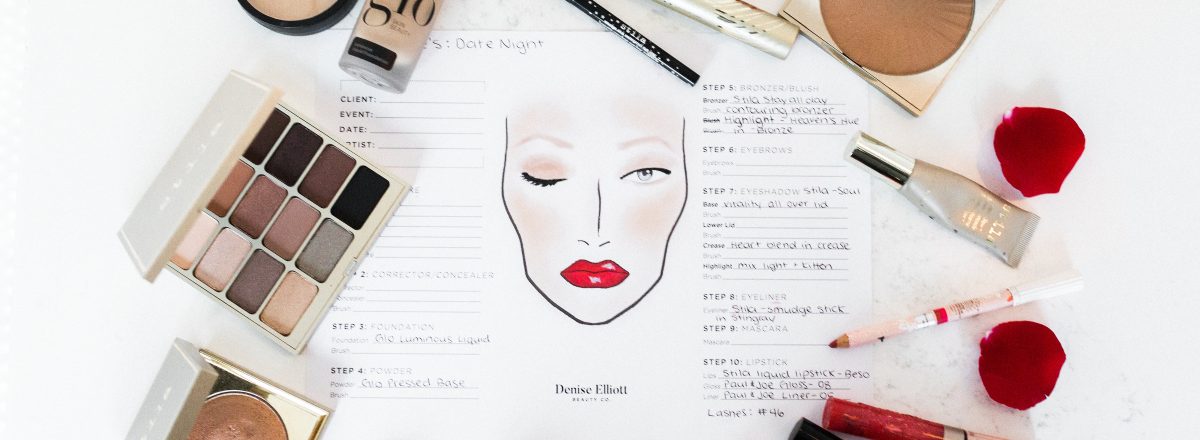 glo
SKIN
BEAUTY
Stila
stila
's: Date Night
CLIENT:
EVENT:
DATE:
TIST:
RE
2: CORRECTOR/CONCEALER
rector
oncealer
Brush
STEP 3: FOUNDATION
Foundation Glo Luminous Liquid
Brush
STEP 4: POWDER
Powder Glo Pressed Base
Brush
Denise Elliott
BEAUTY CO.
STEP 5: BRONZER/BLUSH
Bronzer Stila Stay all day
Brush contouring bronzer
Blush Highlight - Heaven's Hue
Brush in Bronze
STEP 6: EYEBROWS
Eyebrows
Brush
STEP 7: EYESHADOW Stila-Soul
Base vitality all over lid
Brush
Lower Lid
Brush
Crease Heart blend in crease
Brush
Highlight mix light + Kitten
Brush
STEP 8: EYELINER
Eyeliner Stila-smudge stick
in Stingray
STEP 9: MASCARA
Mascara
STEP 10: LIPSTICK
Lips Stila liquid lipstick-Beso
Gloss Paul & Joe Gloss-08
Liner Paul & Joe Liner-
Lashes: #46